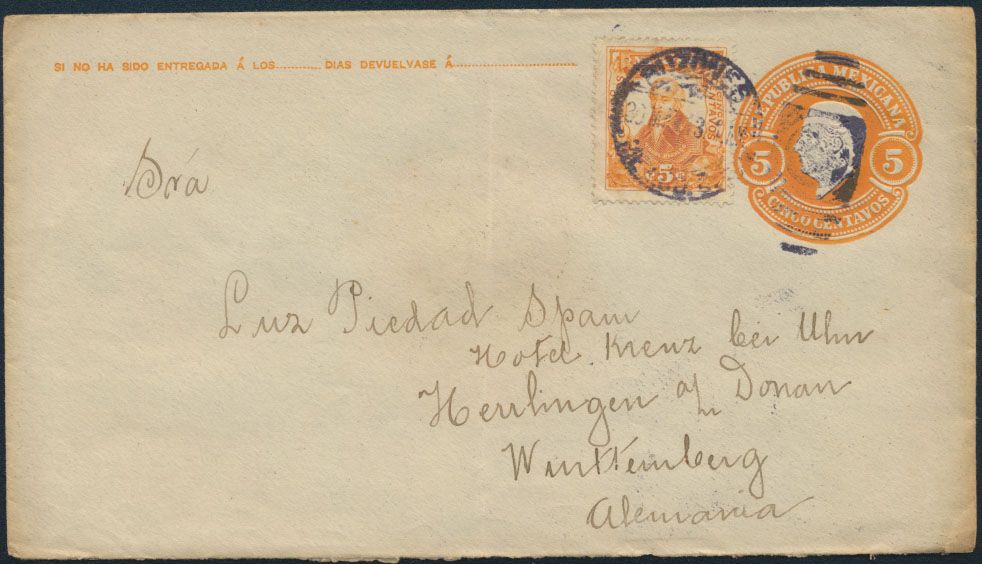 SI NO HA SIDO ENTREGADA Á LOS............ DIAS DEVUELVASE Á................................
REPUBLICA MEXICANA
5 5
CINCO CENTAVOS
5¢
CENTAVOS
Sra
Luz Piedad Spam
Hotel Kreuz bei Uhm
Herrlingen a/ Donau
Wurttemberg
Alemania